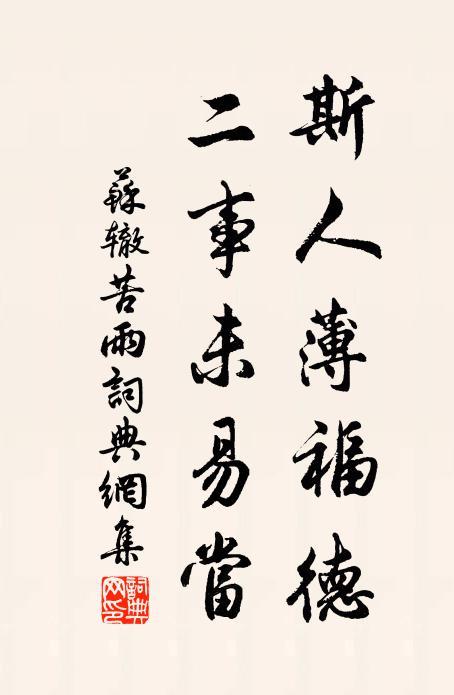 斯人薄福德
二事未易當
蘇辙苦雨詞典網集
詞典网印